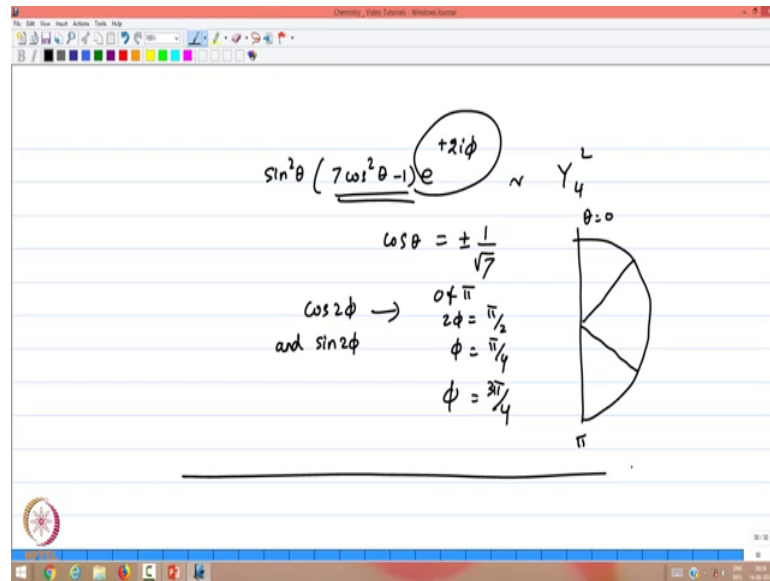 Chemistry_Video Tutorials - Windows Journal
File Edit View Insert Actions Tools Help
B I
sin²θ ( 7cos²θ -1) e^{+2iφ} ~ Y_4^2
θ=0
cosθ = ± 1/√7
0 & π
cos2φ → 2φ = π/2
and sin2φ φ = π/4
φ = 3π/4
π
NPTEL
30/30